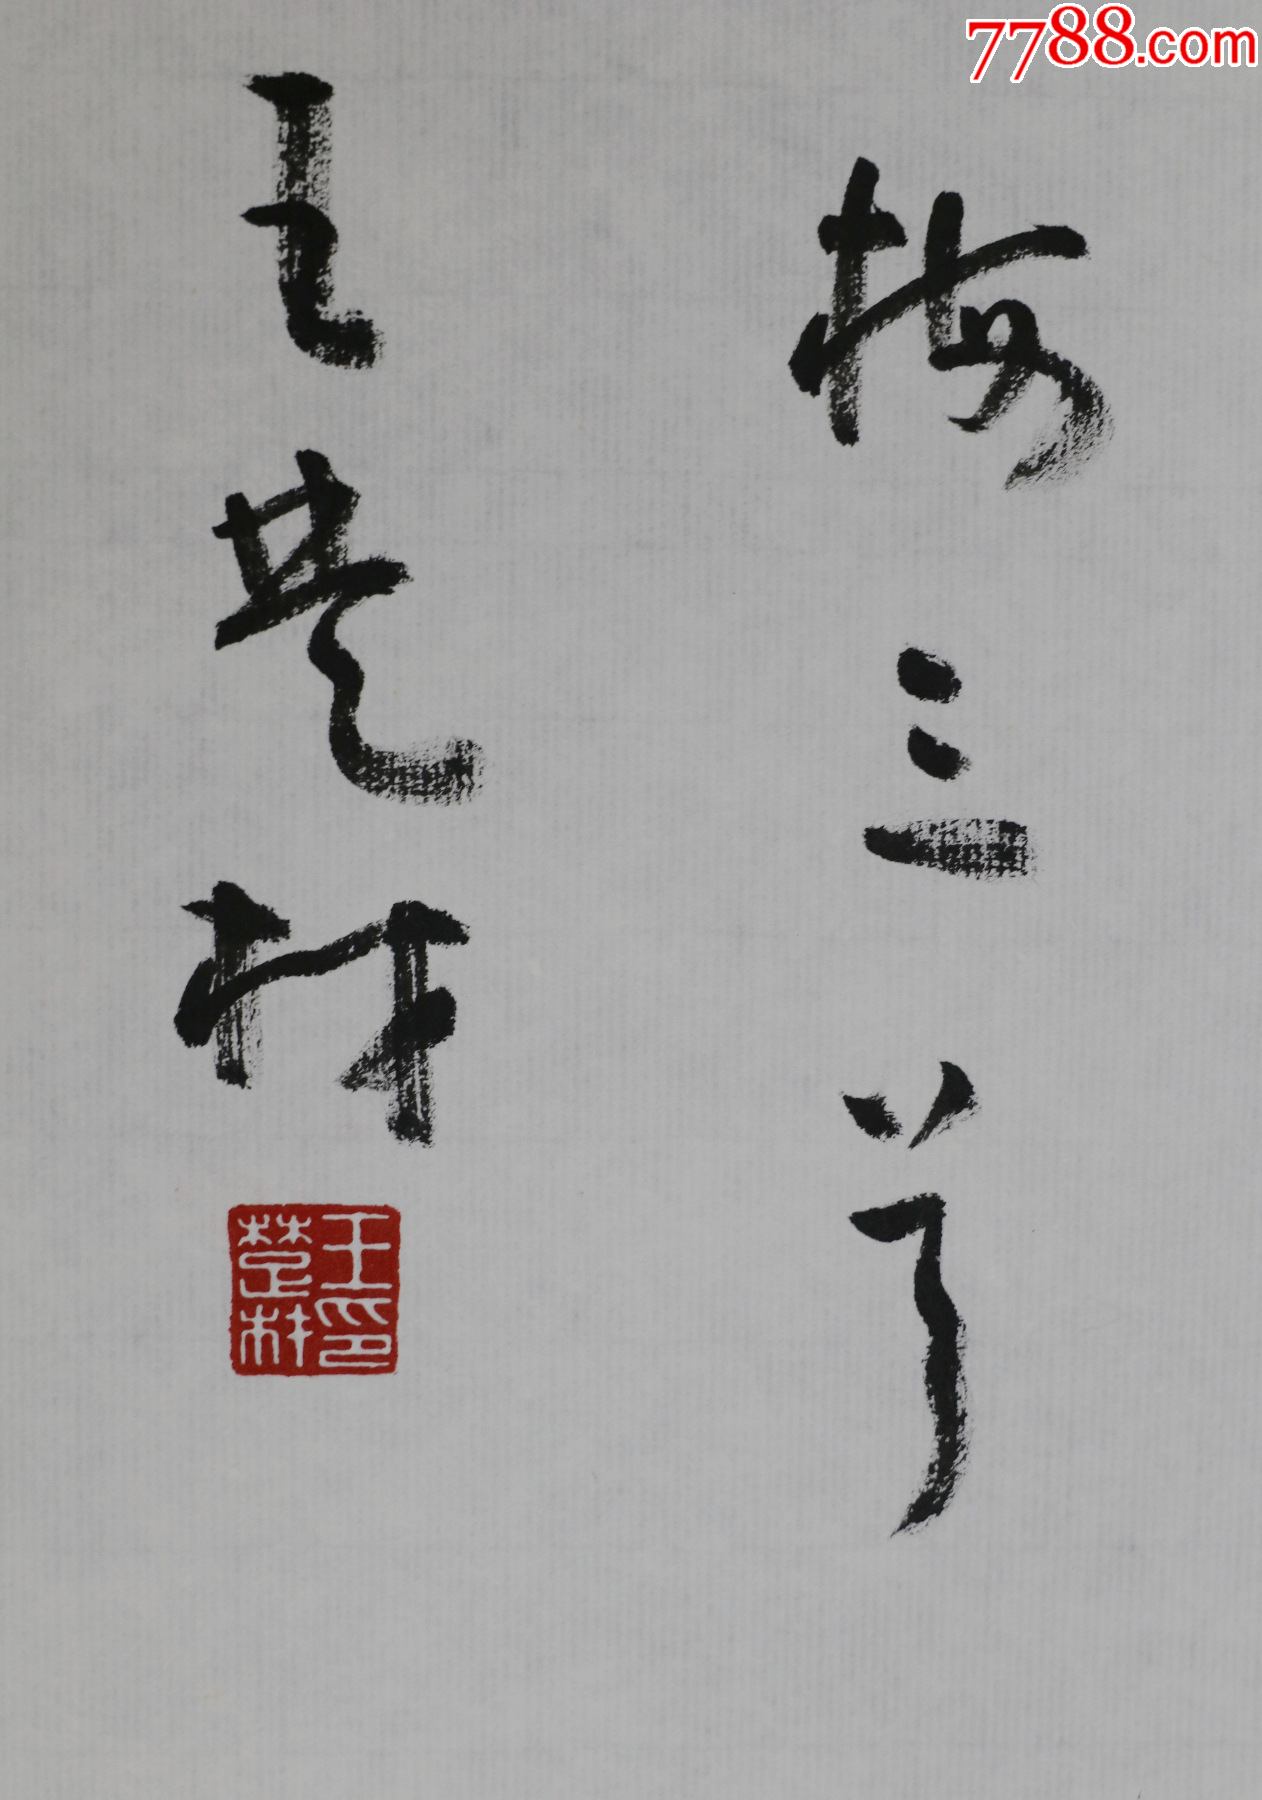 7788.com
梅三首
王楚材
王印
楚材